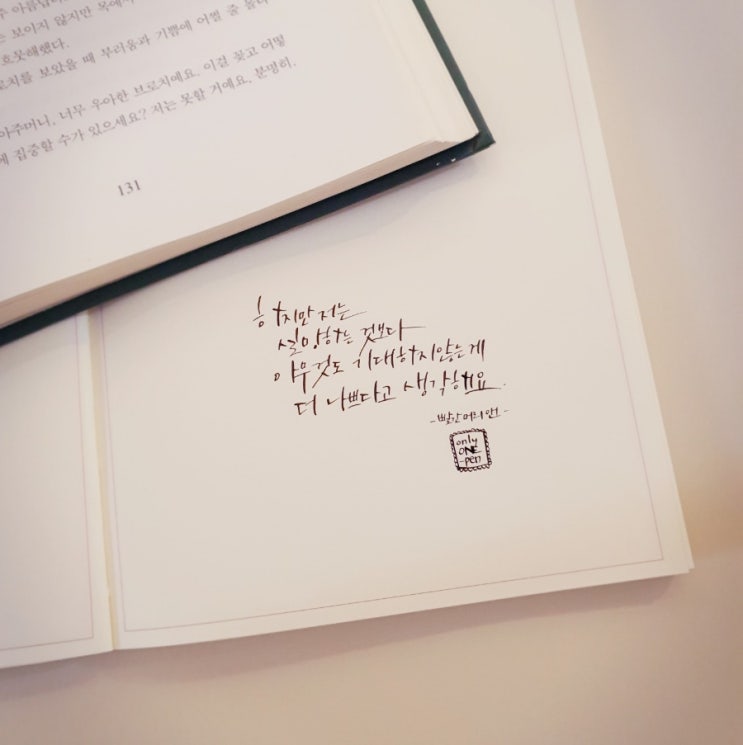 주 아름답
는 보이지 않지만 목에서
흐뭇해했다.
로치를 보았을 때 부러움과 기쁨에 어쩔 줄 몰라
아주머니, 너무 우아한 브로치예요. 이걸 꽂고 어떻
에 집중할 수가 있으세요? 저는 못할 거예요, 분명히.
131
하지만 저는
실망하는 것보다
아무것도 기대하지 않는 게
더 나쁘다고 생각해요.
-빨간머리 앤-
only
ONE
-pen